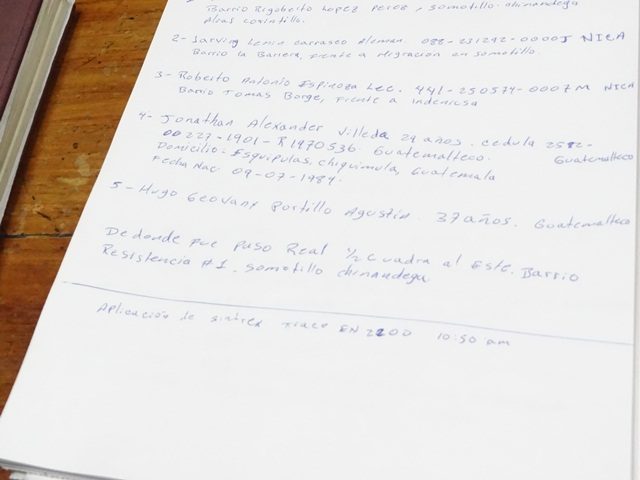 Barrio Rigoberto Lopez Perez, Somotillo. chinandega
Alias
2- Jarving Lenin Carrasco Aleman. 088-231292-0000J NICA
Barrio la Barrera, frente a Migracion en somotillo.
3- Roberto Antonio Espinoza Lee. 441-250574-0007M NICA
Barrio Tomas Borge, Frente a
4- Jonathan Alexander Villeda 29 años. cedula 2582-
00227-1901- 1970536. Guatemalteco. Guatemalteco
Domicilio: Esquipulas, chiquimula, Guatemala
Fecha Nac. 09-07-1989.
5- Hugo Geovany Portillo Agustin. 37 años. Guatemalteco
De donde fue puso Real 1/2 cuadra al Este. Barrio
Resistencia #1. somotillo chinandega
Aplicación de EN 2200 10:50 am